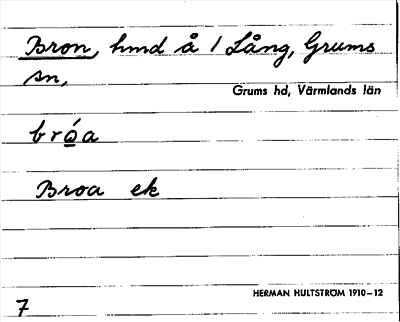 Bron, hmd å / Lång, Grums
sn,
Grums hd, Värmlands län
bró̲a
Broa ek
HERMAN HULTSTRÖM 1910–12
7